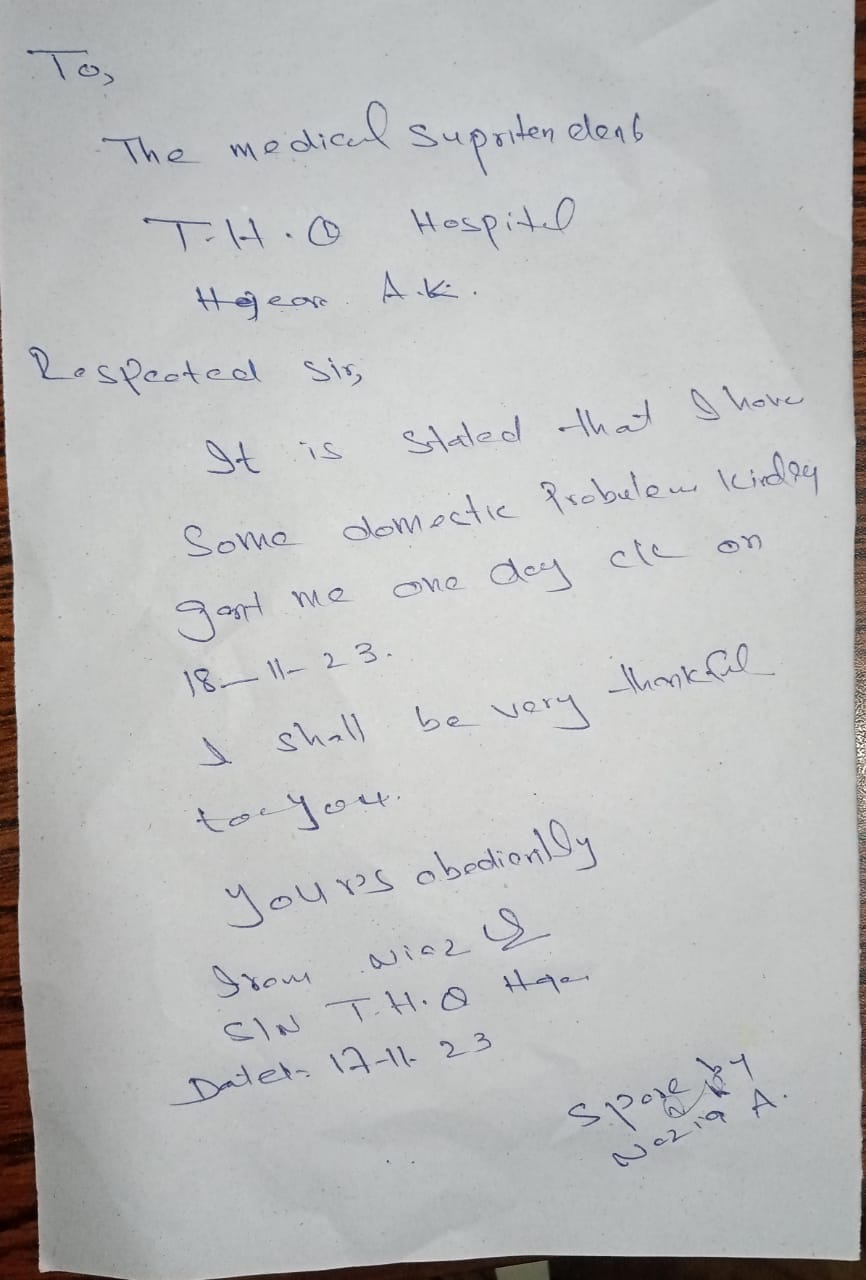 To,
The medical supritendent
T.H.Q Hospital
A.K.
Respected Sir,
It is stated that I have
Some domestic Probulem Kindly
gart me one day c/c on
18-11-23.
I shall be very thankful
to you.
yours obediently
From Niaz
S/N T.H.Q
Date:- 17-11-23
Spare by
Nazia A.